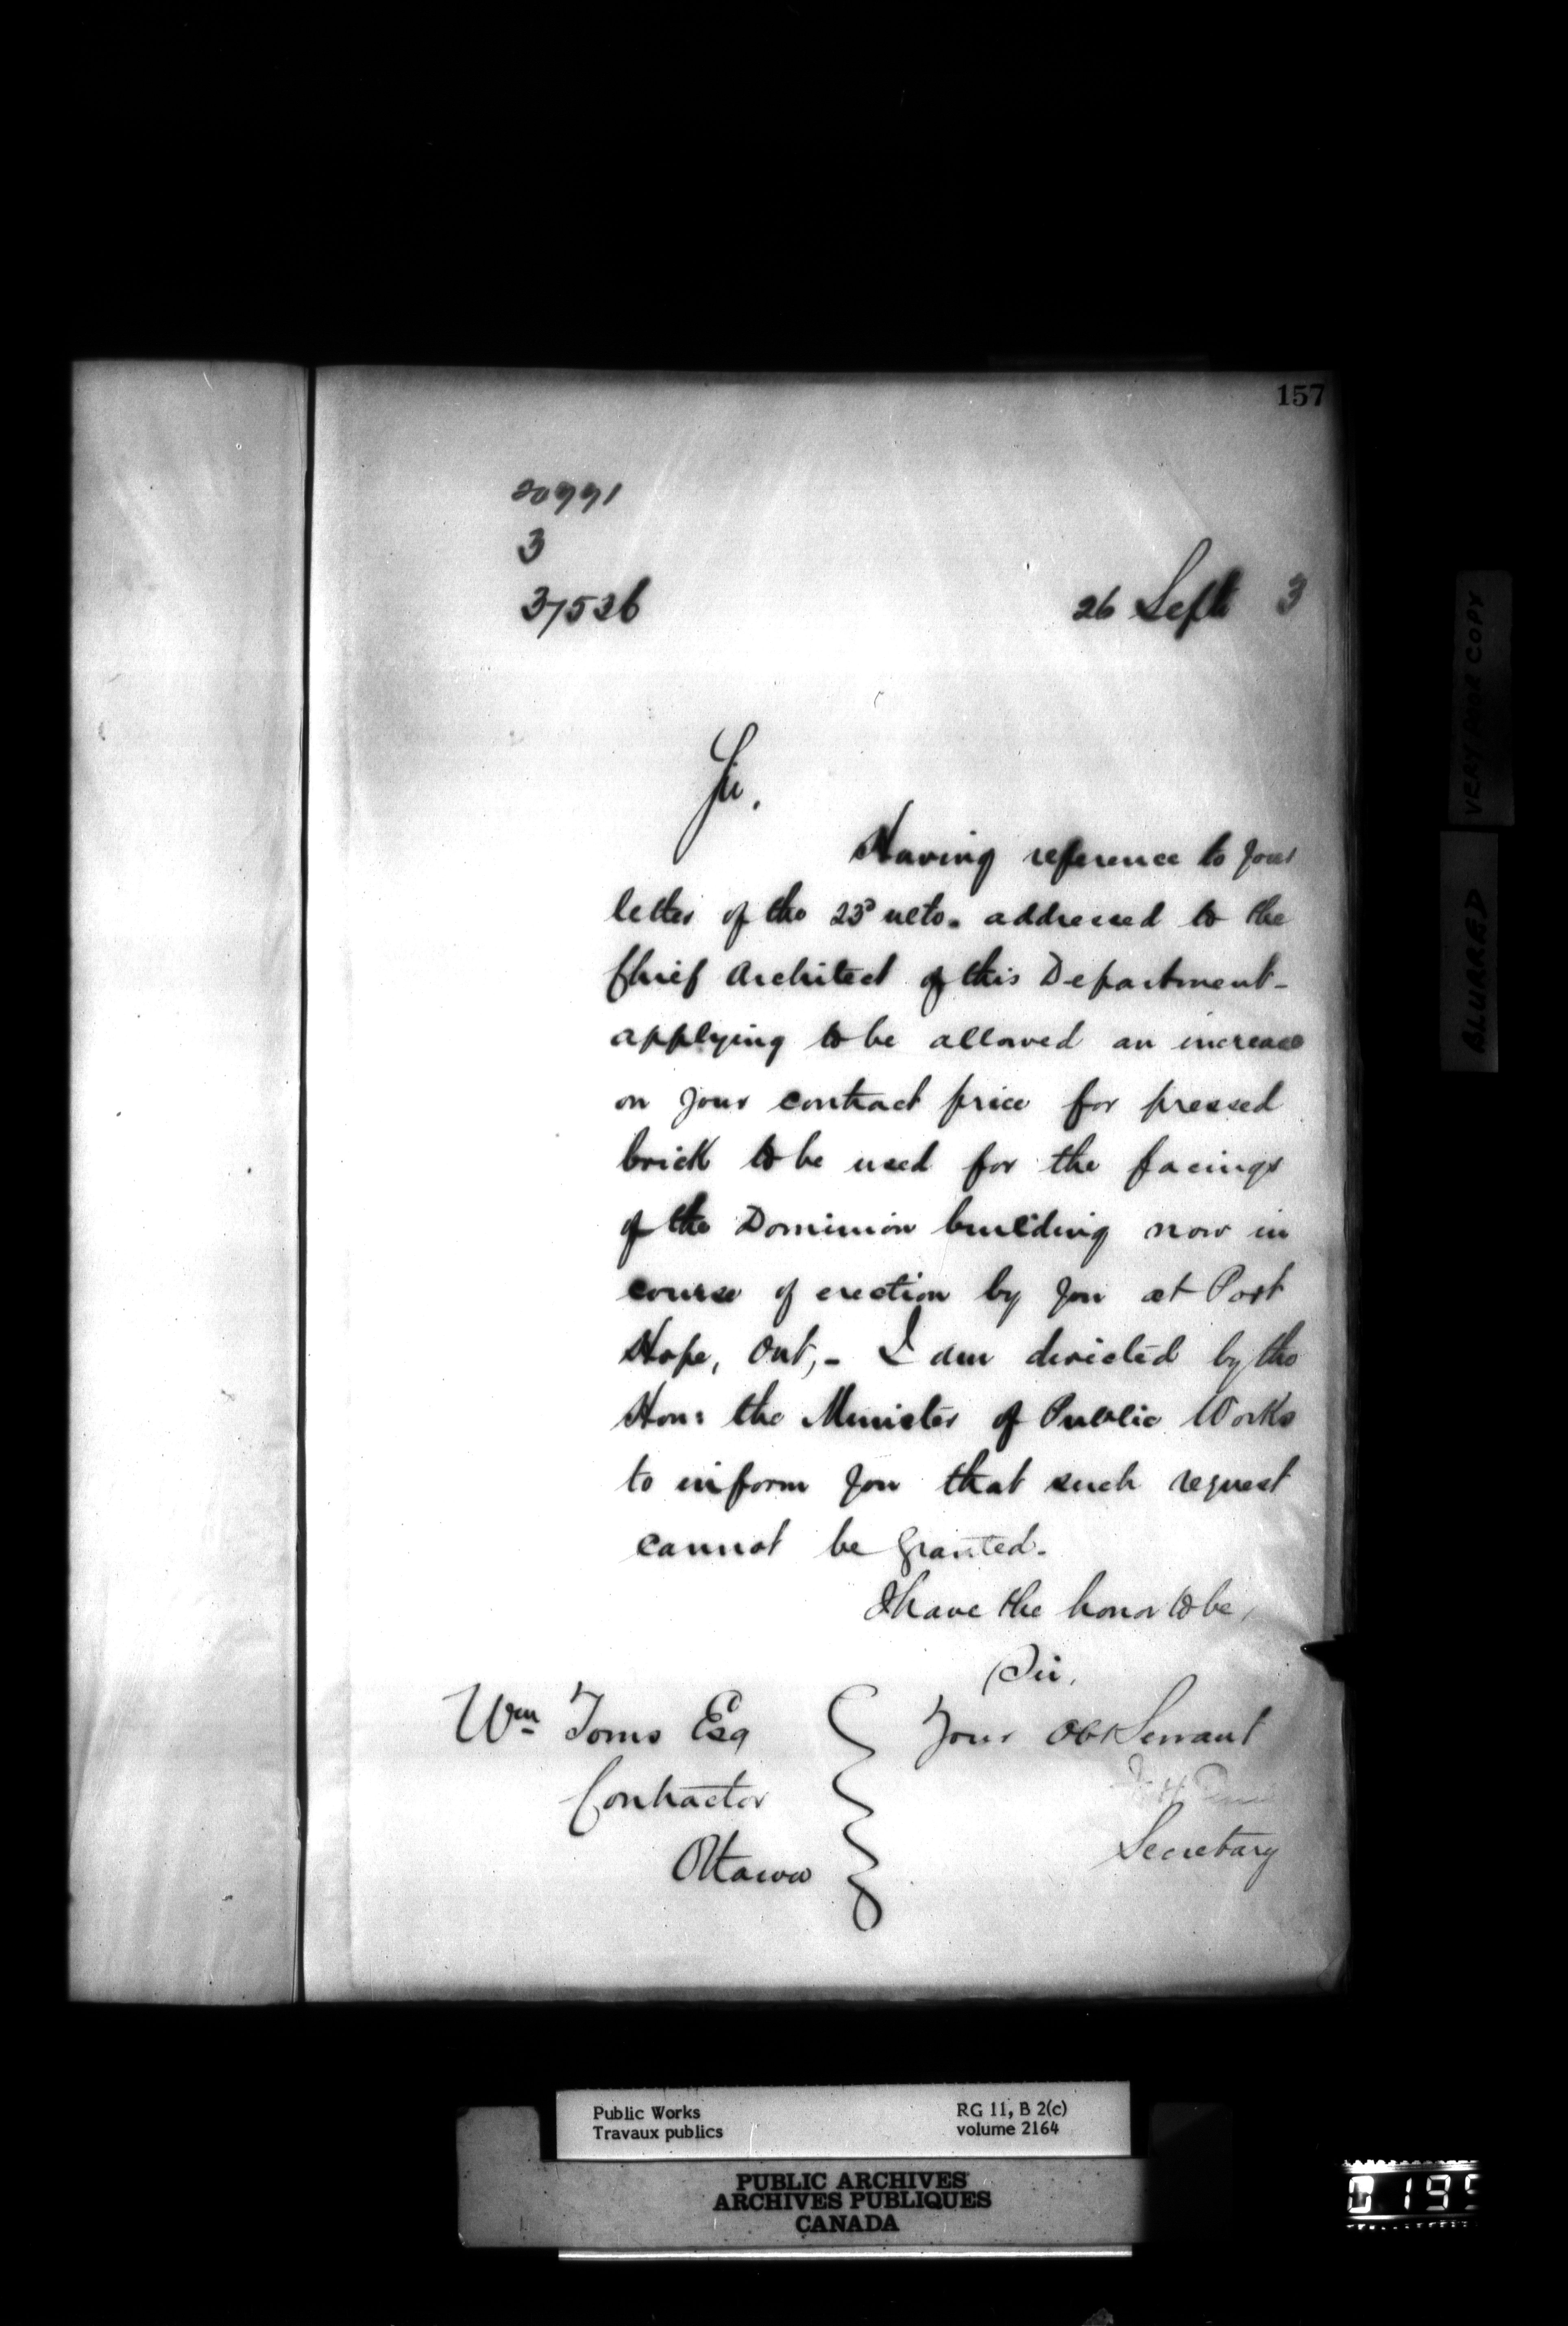 157
20991
3
37526
26 Sept 3
Sir,
Having reference to your
letter of the 23d ulto. addressed to the
Chief Architect of this Department-
applying to be allowed an increase
on your contract price for pressed
brick to be used for the facings
of the Dominion building now in
course of erection by you at Port
Hope, Ont,- I am directed by the
Hon: the Minister of Public Works
to inform you that such request
cannot be granted.
I have the honor to be,
Sir,
Your Obt Servant
Secretary
Wm Toms Esq
Contractor
Ottawa
VERY POOR COPY
BLURRED
Public Works
Travaux publics
RG 11, B 2(c)
volume 2164
PUBLIC ARCHIVES
ARCHIVES PUBLIQUES
CANADA